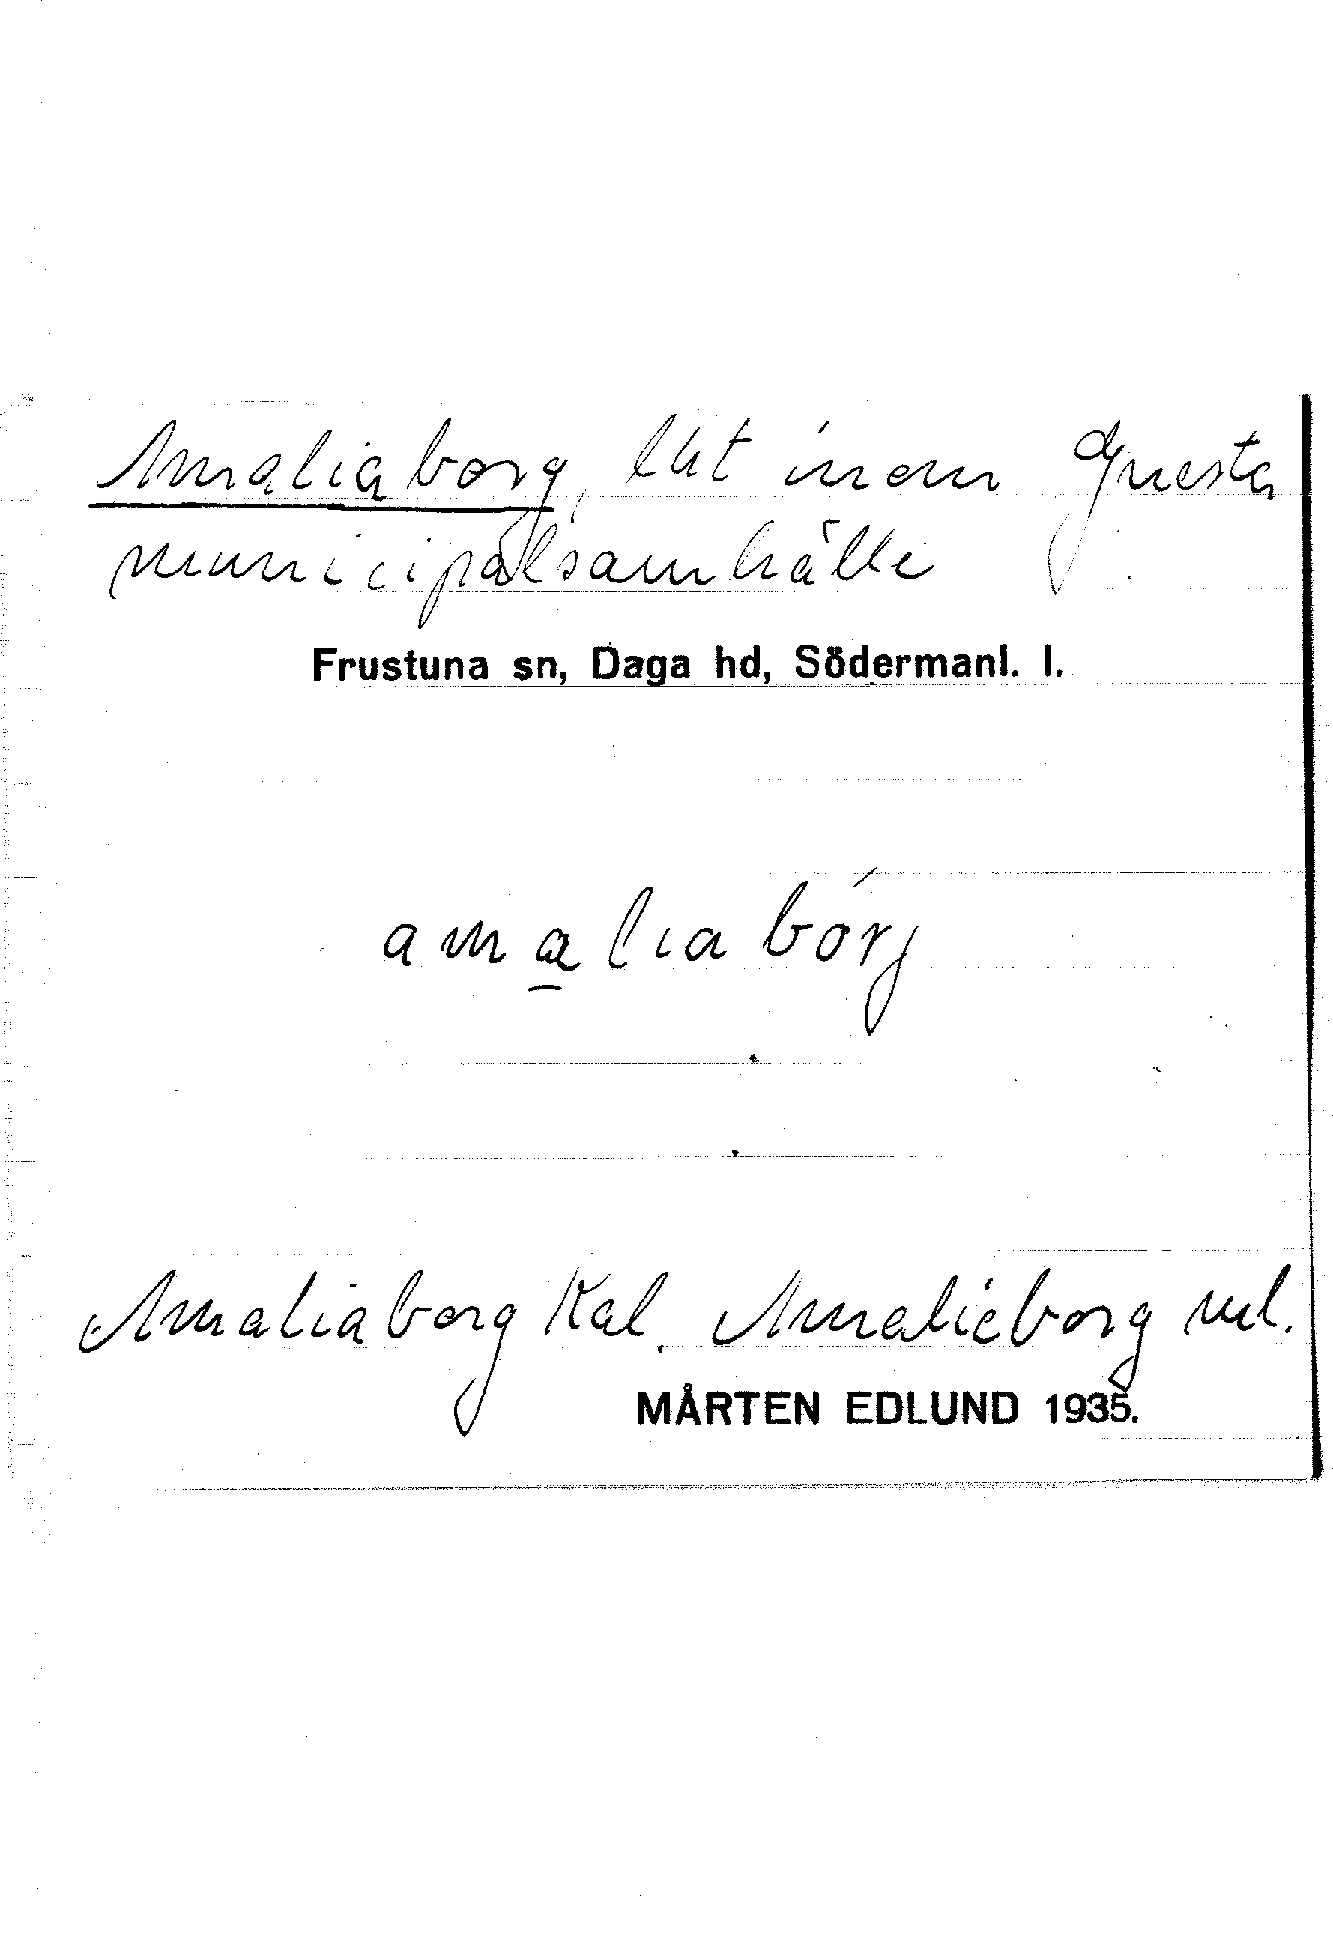 Amaliaborg, lht inom Gnesta
municipalsamhälle
Frustuna sn, Daga hd, Södermanl. l.
amalia bórj
Amaliaborg Kal. Amalieborg ml.
MÅRTEN EDLUND 1935.